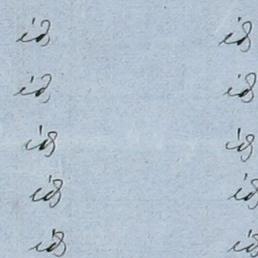 id id
id id
id id
id id
id id